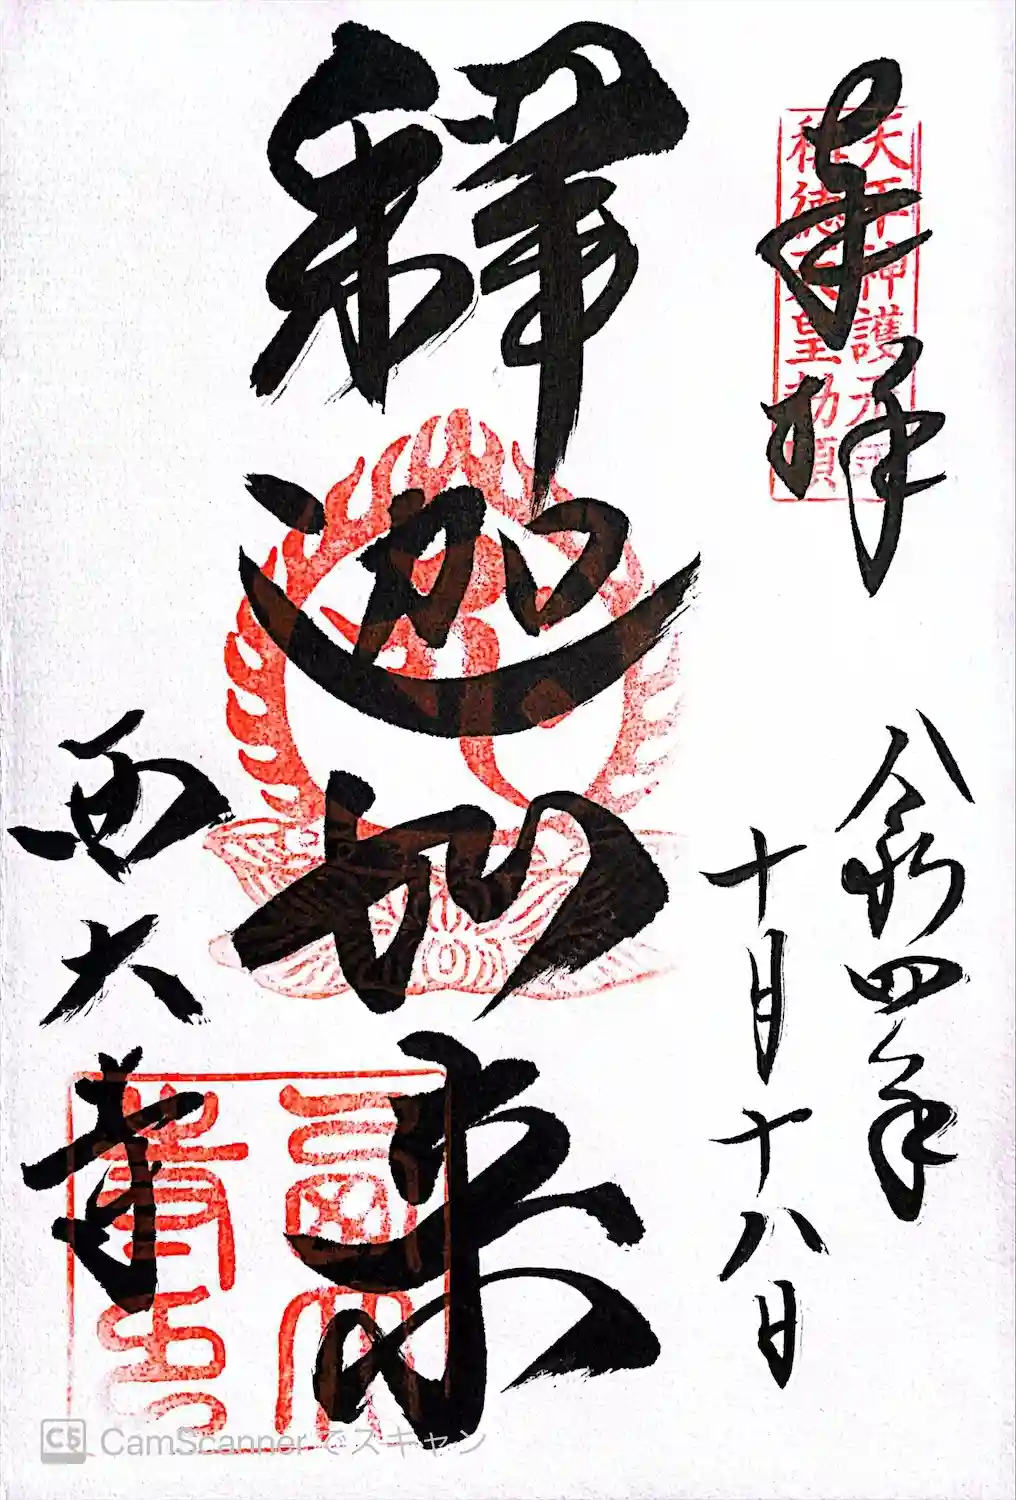 奉拝
天平神護元年
称徳天皇勅願
令和四年
十月十八日
釋迦如来
西大寺
西大寺印
CamScanner でスキャン